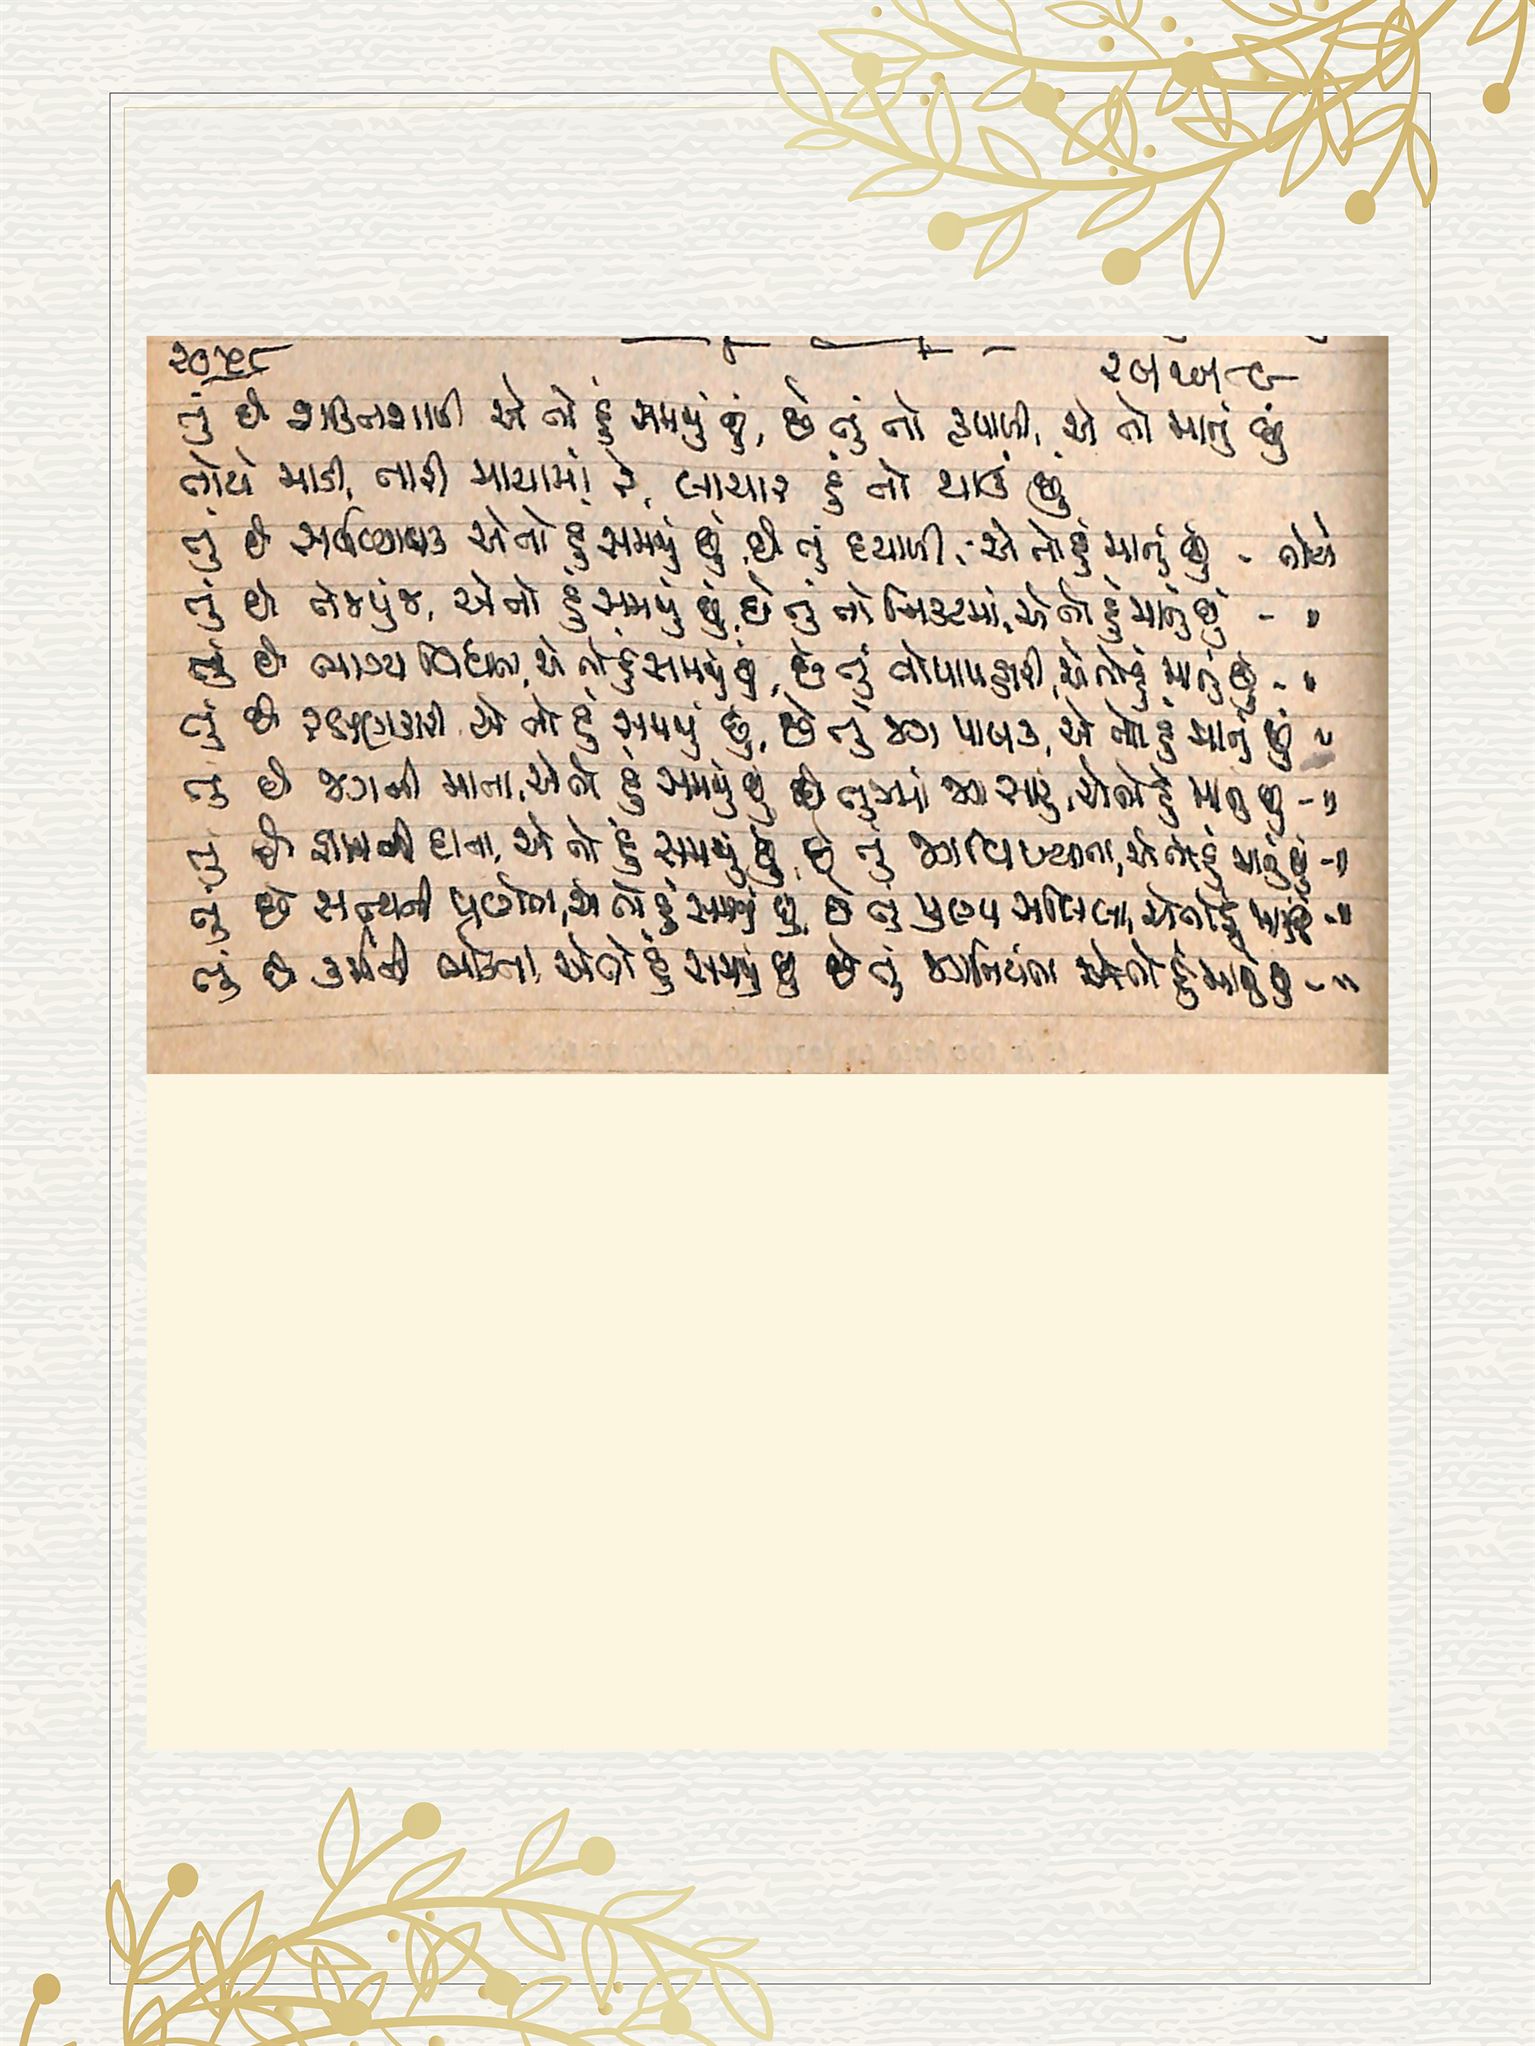 ૨૦૫૮
તું છે શક્તિશાળી એ તો હું સમજું છું, છે તું તો રૂપાળી, એ તો માનું છું
તોયે માડી, તારી માયામાં રે, લાચાર હું તો થાઉં છું
તું છે સર્વવ્યાપક એ તો હું સમજું છું, છે તું દયાળી, એ તો હું માનું છું - તોયે
તું છે તેજપુંજ, એ તો હું સમજું છું, છે તું તો નિકટમાં, એ તો હું માનું છું - "
તું છે ભાગ્ય વિધાતા, એ તો હું સમજું છું, છે તું તો પાપહારી, એ તો હું માનું છું - "
તું છે રક્ષણકારી એ તો હું સમજું છું, છે તું જગ પાલક, એ તો હું માનું છું "
તું છે જગની માતા, એ તો હું સમજું છું છે તુજમાં જગ સારું, એ તો હું માનું છું - "
તું છે દાતા, એ તો હું સમજું છું, છે તું જગવિખ્યાતા, એ તો હું માનું છું - "
તું છે સત્યની પ્રણેતા, એ તો હું સમજું છું, છે તું પુણ્ય સલિલા, એ તો હું - "
તું છે કર્મની એ તો હું સમજું છું છે તું જગનિયંતા એ તો હું માનું છું - "